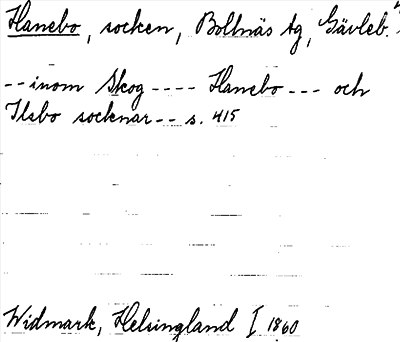 Hanebo, socken, Bollnäs tg, Gävleb.
-- inom Skog ---- Hanebo --- och
Ilsbo socknar -- s. 415
Widmark, Helsingland I 1860